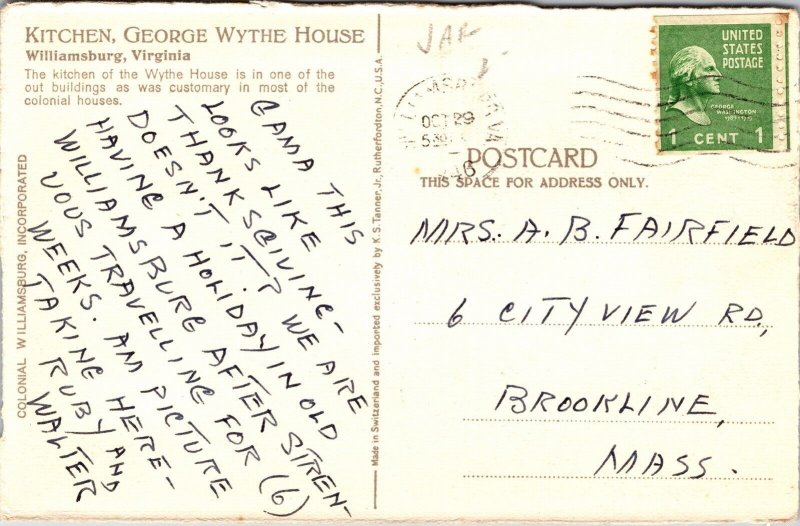 KITCHEN, GEORGE WYTHE HOUSE
Williamsburg, Virginia
The kitchen of the Wythe House is in one of the
out buildings as was customary in most of the
colonial houses.
COLONIAL WILLIAMSBURG, INCORPORATED
GAMA THIS
LOOKS LIKE
THANKSGIVING-
DOESN'T IT? WE ARE
HAVING A HOLIDAY IN OLD
WILLIAMSBURG AFTER STREN-
UOUS TRAVELLING FOR (6)
WEEKS. AM PICTURE
TAKING HERE-
RUBY AND
WALTER
Made in Switzerland and imported exclusively by K. S. Tanner, Jr., Rutherfordton, N.C., U.S.A.
OCT 29
UNITED
STATES
POSTAGE
GEORGE
WASHINGTON
1 CENT 1
POSTCARD
THIS SPACE FOR ADDRESS ONLY.
MRS. A. B. FAIRFIELD
6 CITYVIEW RD.,
BROOKLINE,
MASS.